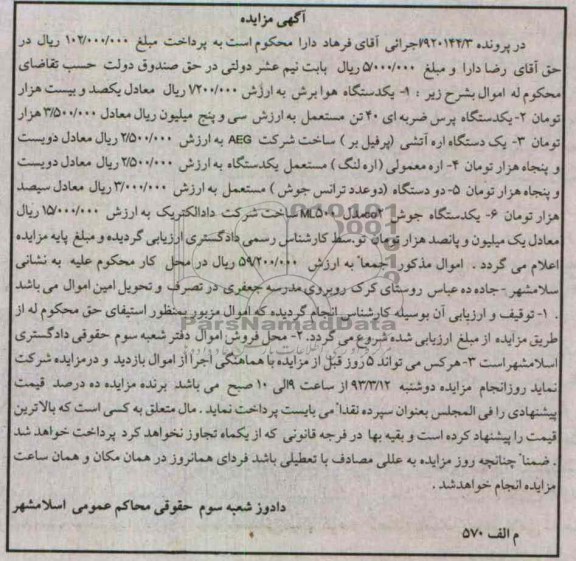 آگهی مزایده
در پرونده ۹۲۰۱۴۴/۳/اجرائی آقای فرهاد دارا محکوم است به پرداخت مبلغ ۱۰۲/۰۰۰/۰۰۰ ریال در
حق آقای رضا دارا و مبلغ ۵/۰۰۰/۰۰۰ ریال بابت نیم عشر دولتی در حق صندوق دولت حسب تقاضای
محکوم له اموال بشرح زیر : ۱- یکدستگاه هوا برش به ارزش ۷۲۰۰/۰۰۰ ریال معادل یکصد و بیست هزار
تومان ۲- یکدستگاه پرس ضربه ای ۴۰ تن مستعمل به ارزش سی و پنج میلیون ریال معادل ۳/۵۰۰/۰۰۰ هزار
تومان ۳- یک دستگاه اره آتشی (پرفیل بر) ساخت شرکت AEG به ارزش ۲/۵۰۰/۰۰۰ ریال معادل دویست
و پنجاه هزار تومان ۴- اره معمولی (اره لنگ) مستعمل یکدستگاه به ارزش ۲/۵۰۰/۰۰۰ ریال معادل دویست
و پنجاه هزار تومان ۵- دو دستگاه (دوعدد ترانس جوش) مستعمل به ارزش ۳/۰۰۰/۰۰۰ ریال معادل سیصد
هزار تومان ۶- یکدستگاه جوش co۲ مدل ML۵۰۰ ساخت شرکت دادالکتریک به ارزش ۱۵/۰۰۰/۰۰۰ ریال
معادل یک میلیون و پانصد هزار تومان توسط کارشناس رسمی دادگستری ارزیابی گردیده و مبلغ پایه مزایده
اعلام می گردد . اموال مذکور جمعاً به ارزش ۵۹/۲۰۰/۰۰۰ ریال در محل کار محکوم علیه به نشانی
سلامشهر - جاده ده عباس روستای کرک روبروی مدرسه جعفری در تصرف و تحویل امین اموال می باشد
. ۱- توقیف و ارزیابی آن بوسیله کارشناس انجام گردیده که اموال مزبور بمنظور استیفای حق محکوم له از
طریق مزایده از مبلغ ارزیابی شده شروع می گردد. ۲- محل فروش اموال دفتر شعبه سوم حقوقی دادگستری
اسلامشهر است ۳- هرکس می تواند ۵ روز قبل از مزایده با هماهنگی اجرا از اموال بازدید و در مزایده شرکت
نماید روز انجام مزایده دوشنبه ۹۳/۳/۱۲ از ساعت ۹ الی ۱۰ صبح می باشد برنده مزایده ده درصد قیمت
پیشنهادی را فی المجلس بعنوان سپرده نقداً می بایست پرداخت نماید . مال متعلق به کسی است که بالاترین
قیمت را پیشنهاد کرده است و بقیه بها در فرجه قانونی که از یکماه تجاوز نخواهد کرد پرداخت خواهد شد
. ضمناً چنانچه روز مزایده به عللی مصادف با تعطیلی باشد فردای همانروز در همان مکان و همان ساعت
مزایده انجام خواهد شد .
دادورز شعبه سوم حقوقی محاکم عمومی اسلامشهر
م الف ۵۷۰
ParsNamadData